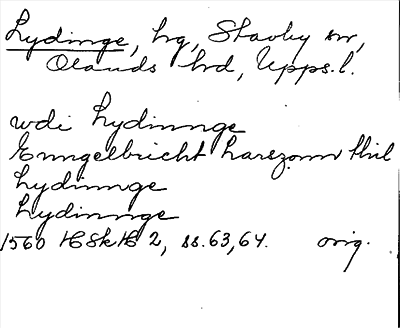 Lydinge, hg, Stavby sn,
Olands hd, Upps.l.
wdi Lydinnge
Enngelbricht Larszonn thil
Lydinnge
Lydinnge
1560 HSkH 2, ss.63,64. orig.